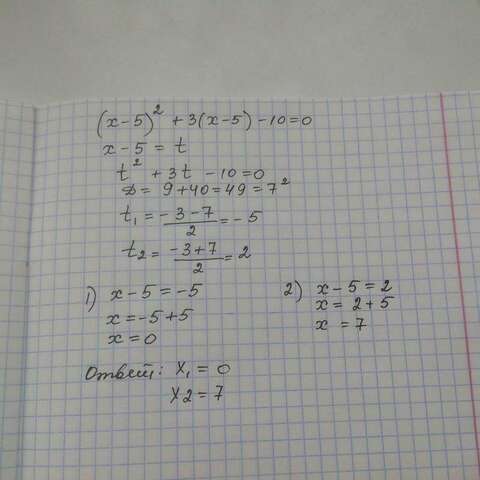 (x-5)² + 3(x-5) -10=0
x-5 = t
t² + 3t -10=0
D= 9+40=49=7²
t₁= (-3-7)/2 = -5
t2= (-3+7)/2 = 2
1) x-5=-5
x=-5+5
x=0
2) x-5=2
x= 2+5
x =7
Ответ: x₁= 0
x2=7